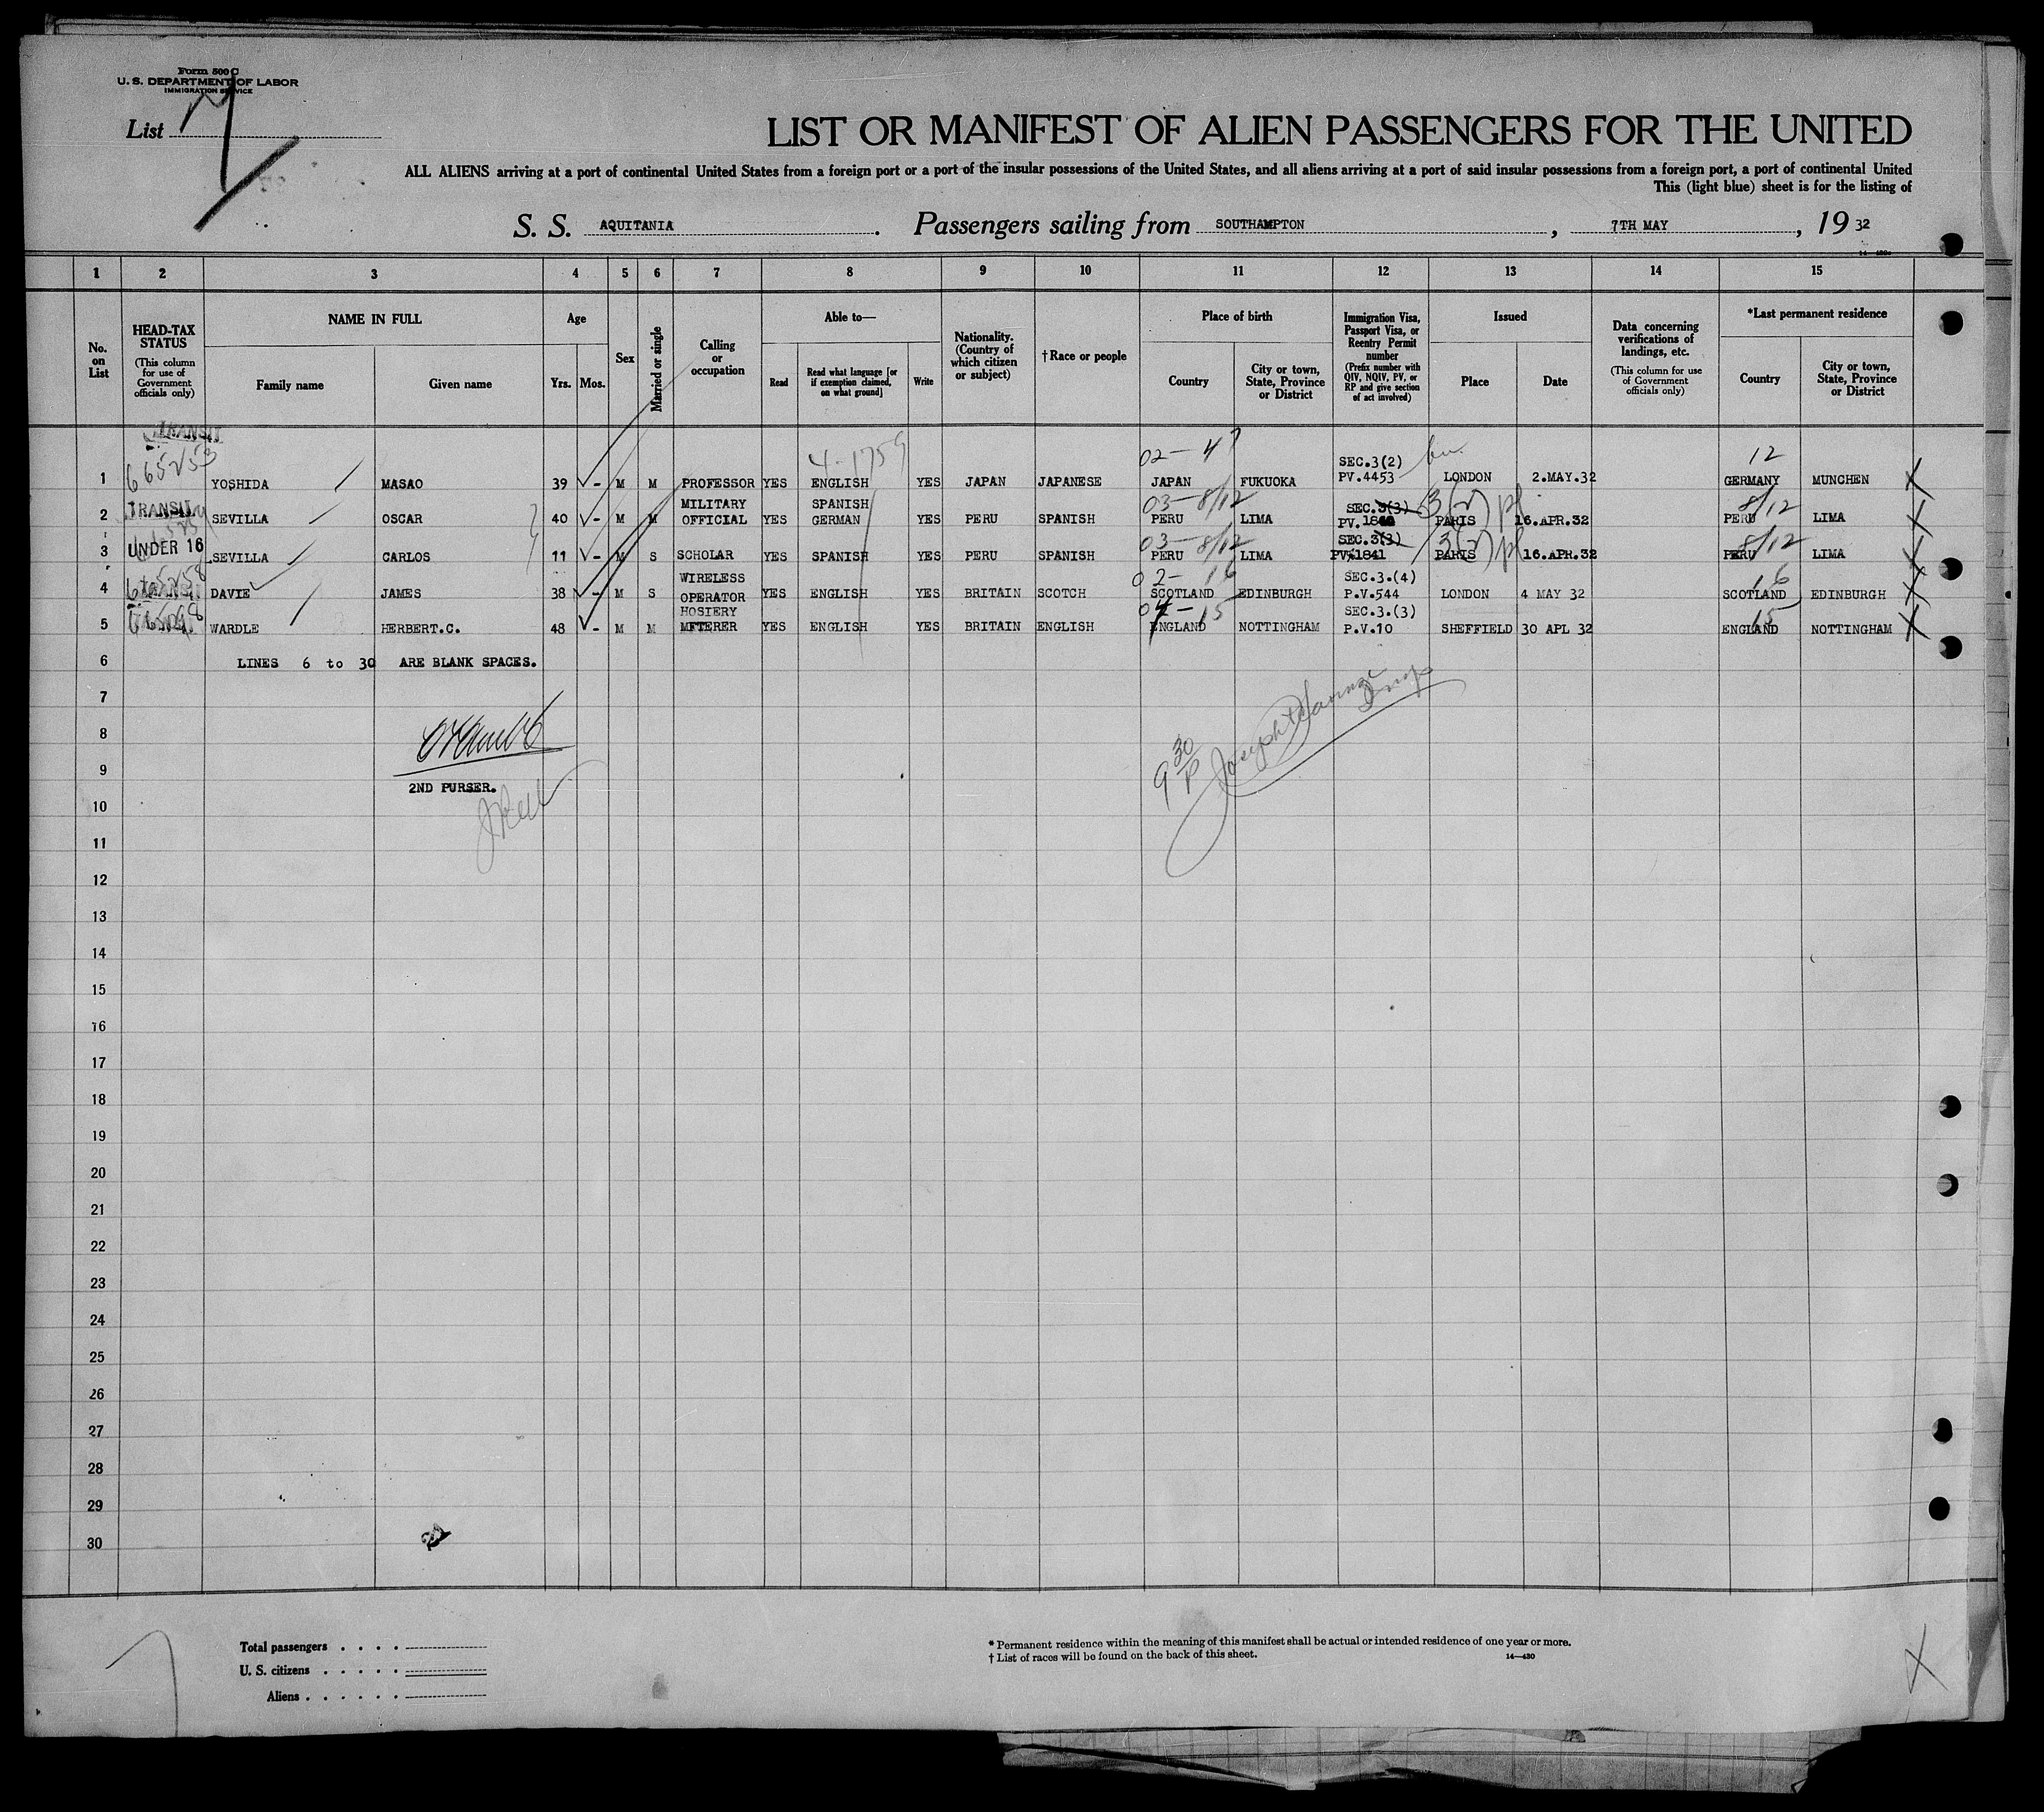 Form 500 C
U. S. DEPARTMENT OF LABOR
IMMIGRATION SERVICE
List
LIST OR MANIFEST OF ALIEN PASSENGERS FOR THE UNITED
ALL ALIENS arriving at a port of continental United States from a foreign port or a port of the insular possessions of the United States, and all aliens arriving at a port of said insular possessions from a foreign port, a port of continental United
This (light blue) sheet is for the listing of
S. S. AQUITANIA . Passengers sailing from SOUTHAMPTON , 7TH MAY , 19 32
1 2 3 4 5 6 7 8 9 10 11 12 13 14 15
No. on List
HEAD-TAX STATUS (This column for use of Government officials only)
NAME IN FULL
Family name Given name
Age
Yrs. Mos.
Sex
Married or single
Calling or occupation
Able to—
Read Read what language [or if exemption claimed, on what ground] Write
Nationality. (Country of which citizen or subject)
†Race or people
Place of birth
Country City or town, State, Province or District
Immigration Visa, Passport Visa, or Reentry Permit number (Prefix number with QIV, NQIV, PV, or RP and give section of act involved)
Issued
Place Date
Data concerning verifications of landings, etc. (This column for use of Government officials only)
*Last permanent residence
Country City or town, State, Province or District
TRANSIT 4-1759 02-47 12
1 665253 YOSHIDA MASAO 39 - M M PROFESSOR YES ENGLISH YES JAPAN JAPANESE JAPAN FUKUOKA SEC.3(2) PV.4453 LONDON 2.MAY.32 GERMANY MUNCHEN X
03-8/12 8/12
2 TRANSIT SEVILLA OSCAR 40 - M M MILITARY OFFICIAL YES SPANISH GERMAN YES PERU SPANISH PERU LIMA SEC.3(3) PV. 3(2) PARIS 16.APR.32 PERU LIMA X
03-8/12 8/12
3 UNDER 16 SEVILLA CARLOS 11 - M S SCHOLAR YES SPANISH YES PERU SPANISH PERU LIMA SEC.3(3) PV.1841 3(2) PARIS 16.APR.32 PERU LIMA X
02-16 16
4 DAVIE JAMES 38 - M S WIRELESS OPERATOR YES ENGLISH YES BRITAIN SCOTCH SCOTLAND EDINBURGH SEC.3.(4) P.V.544 LONDON 4 MAY 32 SCOTLAND EDINBURGH X
04-15 15
5 WARDLE HERBERT.C. 48 - M M HOSIERY MFTERER YES ENGLISH YES BRITAIN ENGLISH ENGLAND NOTTINGHAM SEC.3.(3) P.V.10 SHEFFIELD 30 APL 32 ENGLAND NOTTINGHAM X
6 LINES 6 to 30 ARE BLANK SPACES.
7
8
9 9 30 P
2ND PURSER.
10
11
12
13
14
15
16
17
18
19
20
21
22
23
24
25
26
27
28
29
30
Total passengers . . . .
U. S. citizens . . . . .
Aliens . . . . . .
* Permanent residence within the meaning of this manifest shall be actual or intended residence of one year or more.
† List of races will be found on the back of this sheet. 14—430
X